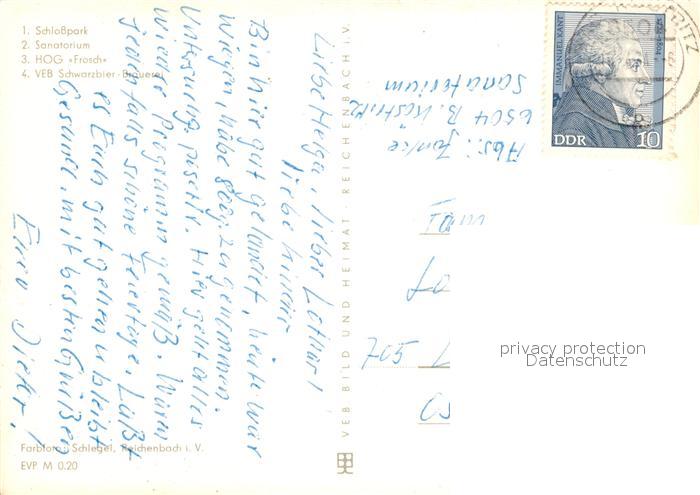 1. Schloßpark
2. Sanatorium
3. HOG »Frosch«
4. VEB Schwarzbier-Brauerei
Liebe Helga, lieber Lothar!
liebe Kinder
Bin hier gut gelandet, heute war
wiegen, habe 800g zugenommen.
Untersuchg. positiv. Hier geht alles
wieder Programm gemäß. Waren
jedenfalls schöne Feiertage. Laßt
es Euch gut gehen u. bleibt
Gesund, mit besten Grüßen
Euer Dieter!
Farbfoto: Schlegel, Reichenbach i. V.
EVP M 0.20
VEB BILD UND HEIMAT · REICHENBACH I. V.
Abs: Junke
6504 B. Köstritz
Sanatorium
IMMANUEL KANT
DDR
10
Fam
Lo
705 L
Os
privacy protection
Datenschutz